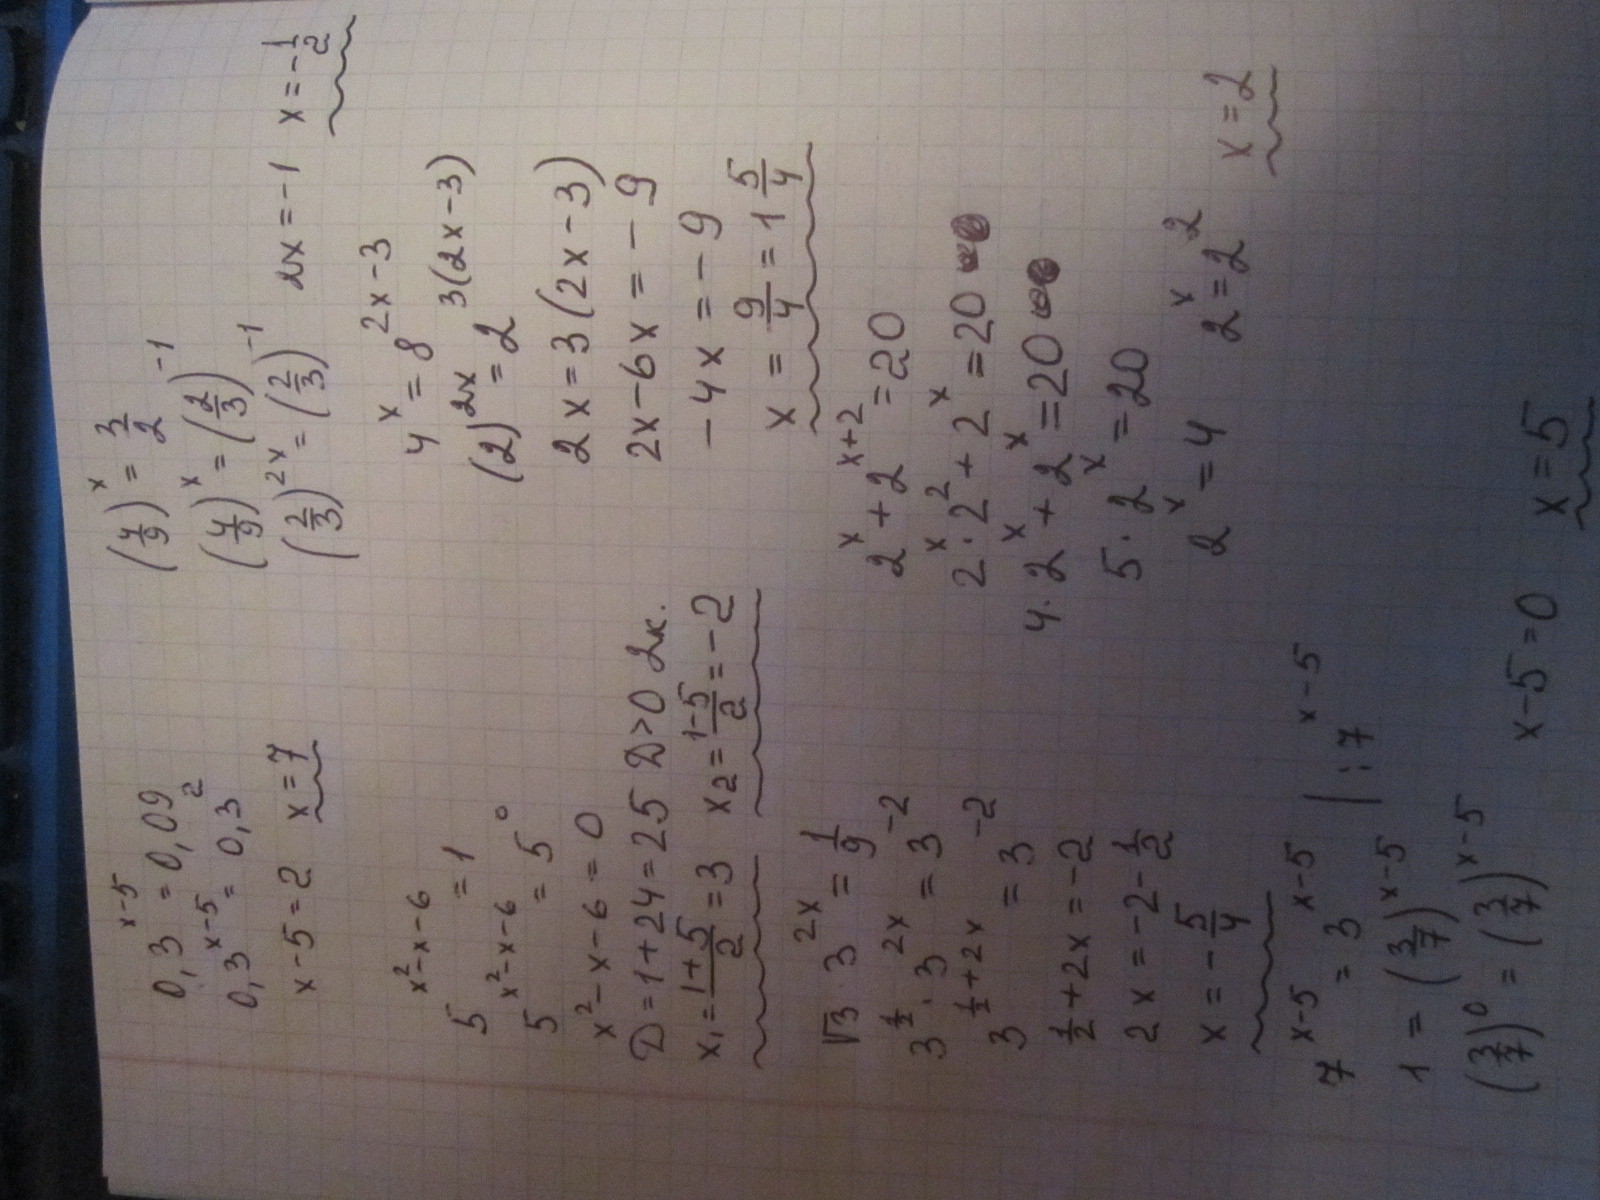 0,3^(x-5) = 0,09
0,3^(x-5) = 0,3^2
x-5=2 x=7
5^(x²-x-6) = 1
5^(x²-x-6) = 5^0
x²-x-6=0
D=1+24=25 D>0 2к.
x₁=(1+5)/2=3 x₂=(1-5)/2=-2
√3·3^(2x)=1/9
3^(1/2)·3^(2x)=3^(-2)
3^(1/2+2x)=3^(-2)
1/2+2x=-2
2x=-2-1/2
x=-5/4
7^(x-5)=3^(x-5) |:7^(x-5)
1=(3/7)^(x-5)
(3/7)^0=(3/7)^(x-5) x-5=0 x=5
(4/9)^x=3/2
(4/9)^x=(2/3)^(-1)
(2/3)^(2x)=(2/3)^(-1) 2x=-1 x=-1/2
4^x=8^(2x-3)
(2)^(2x)=2^(3(2x-3))
2x=3(2x-3)
2x-6x=-9
-4x=-9
x=9/4=1 5/4
2^x+2^(x+2)=20
2^x·2^2+2^x=20
4·2^x+2^x=20
5·2^x=20
2^x=4 2^x=2^2 x=2